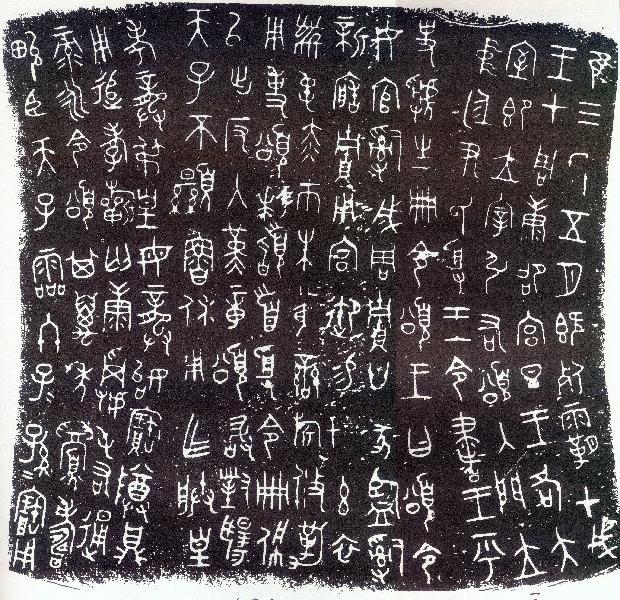 隹三年五月既死霸甲戌
王才周康卲宮旦王各大
室即立宰弘右頌入門立
中廷尹氏受王令書王乎
史虢生冊令頌王曰頌令
女官𤔲成周貯廿家監𤔲
新造貯用宮御易女玄衣
黹屯赤巿朱黃䜌旂攸勒
用事頌拜𩒨首受令冊佩
以出反入堇章頌敢對揚
天子不顯魯休用乍朕皇
考龏弔皇母龏始寶尊鼎
用追孝𣄨匄康屯右通
彔永令頌其萬年眉壽
畯臣天子霝冬子孫寶用